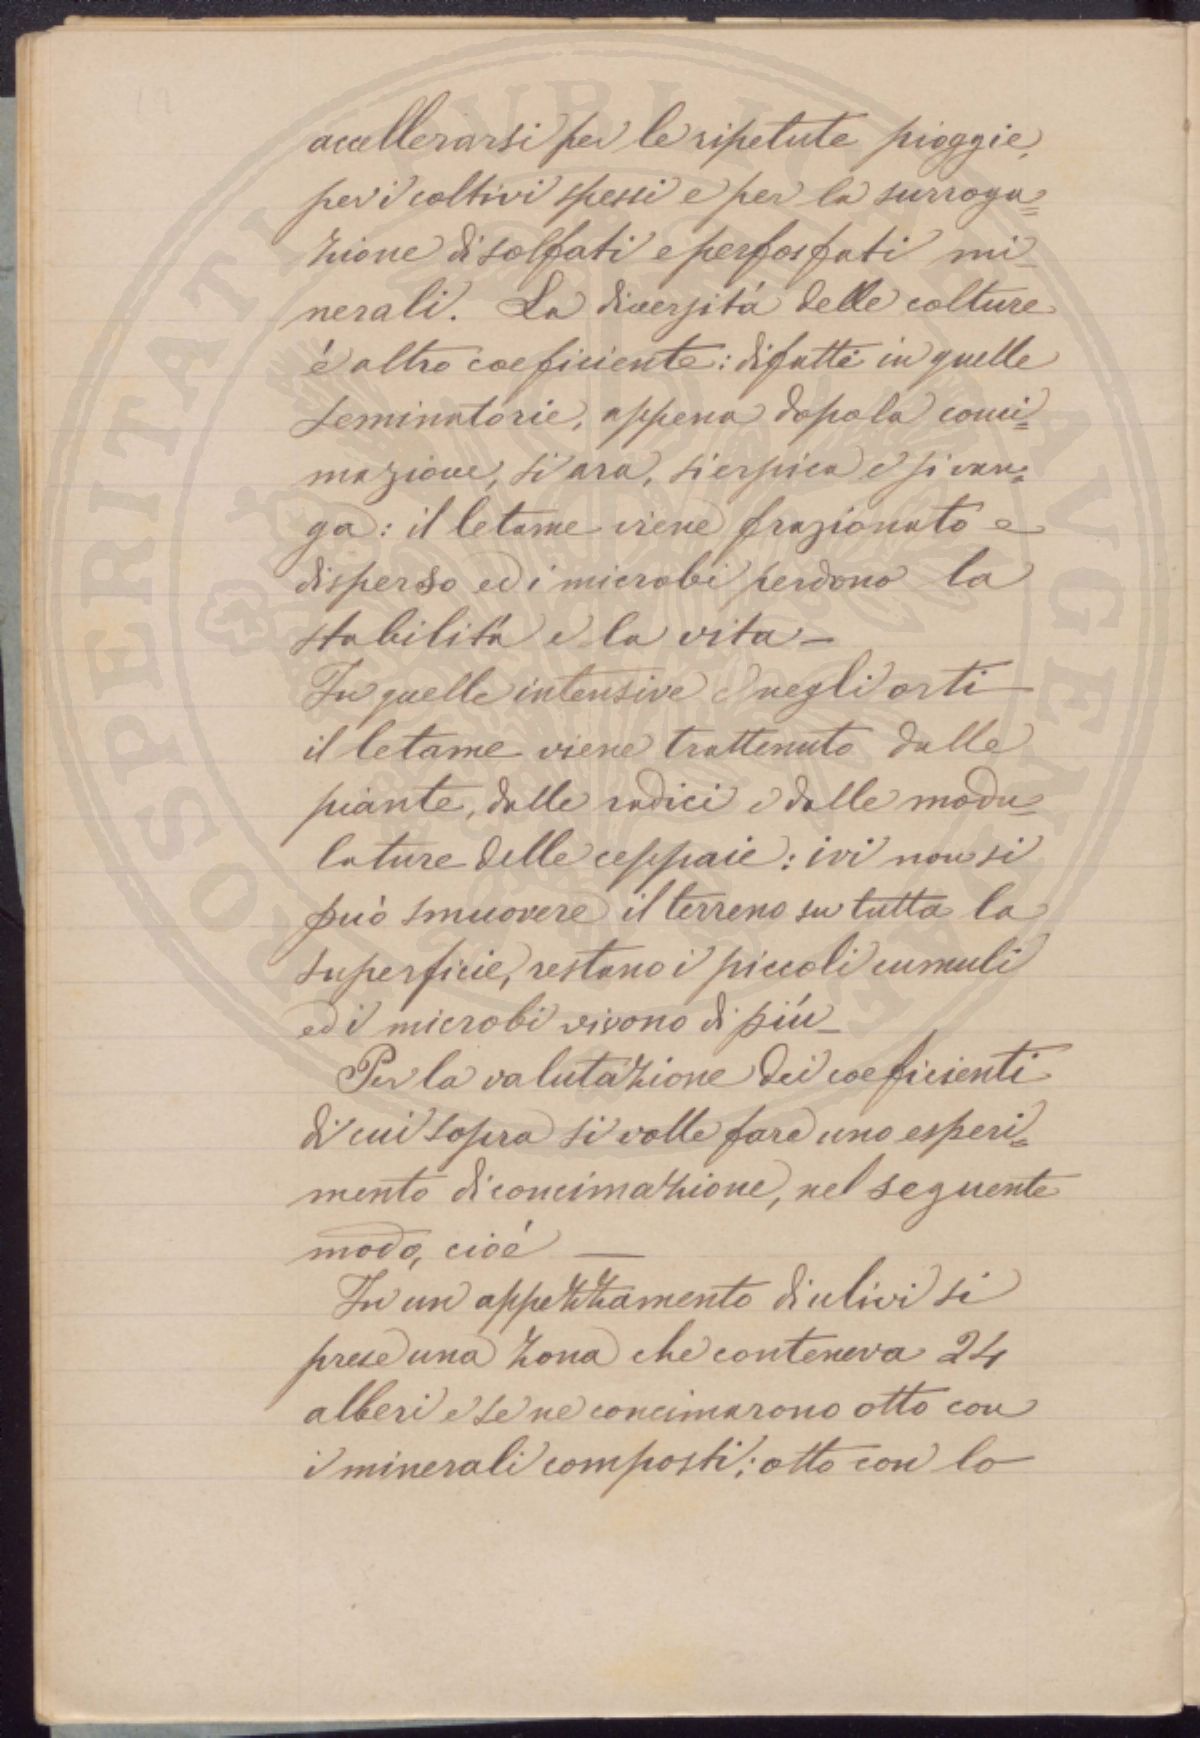 accellerarsi per le ripetute pioggie,
per i coltivi spessi e per la surroga=
zione di solfati e perfosfati mi_
nerali. La diversitá delle colture
é altro coeficiente: difatti in quelle
seminatorie, appena dopo la conci=
mazione, si ara, si erpica e si van=
ga: il letame viene frazionato e
disperso ed i microbi perdono la
stabilitá e la vita _
In quelle intensive e negli orti
il letame viene trattenuto dalle
piante, dalle radici e dalle modu=
lature delle ceppaie: ivi non si
può smuovere il terreno su tutta la
superficie, restano i piccoli cumuli
ed i microbi vivono di piú _
Per la valutazione dei coeficienti
di cui sopra si volle fare uno esperi=
mento di concimazione, nel seguente
modo, cioé —
In un appezzamento di ulivi si
prese una zona che conteneva 24
alberi e se ne concimarono otto con
i minerali composti; otto con lo
PROSPERITATI PVBLICAE AVGENDAE